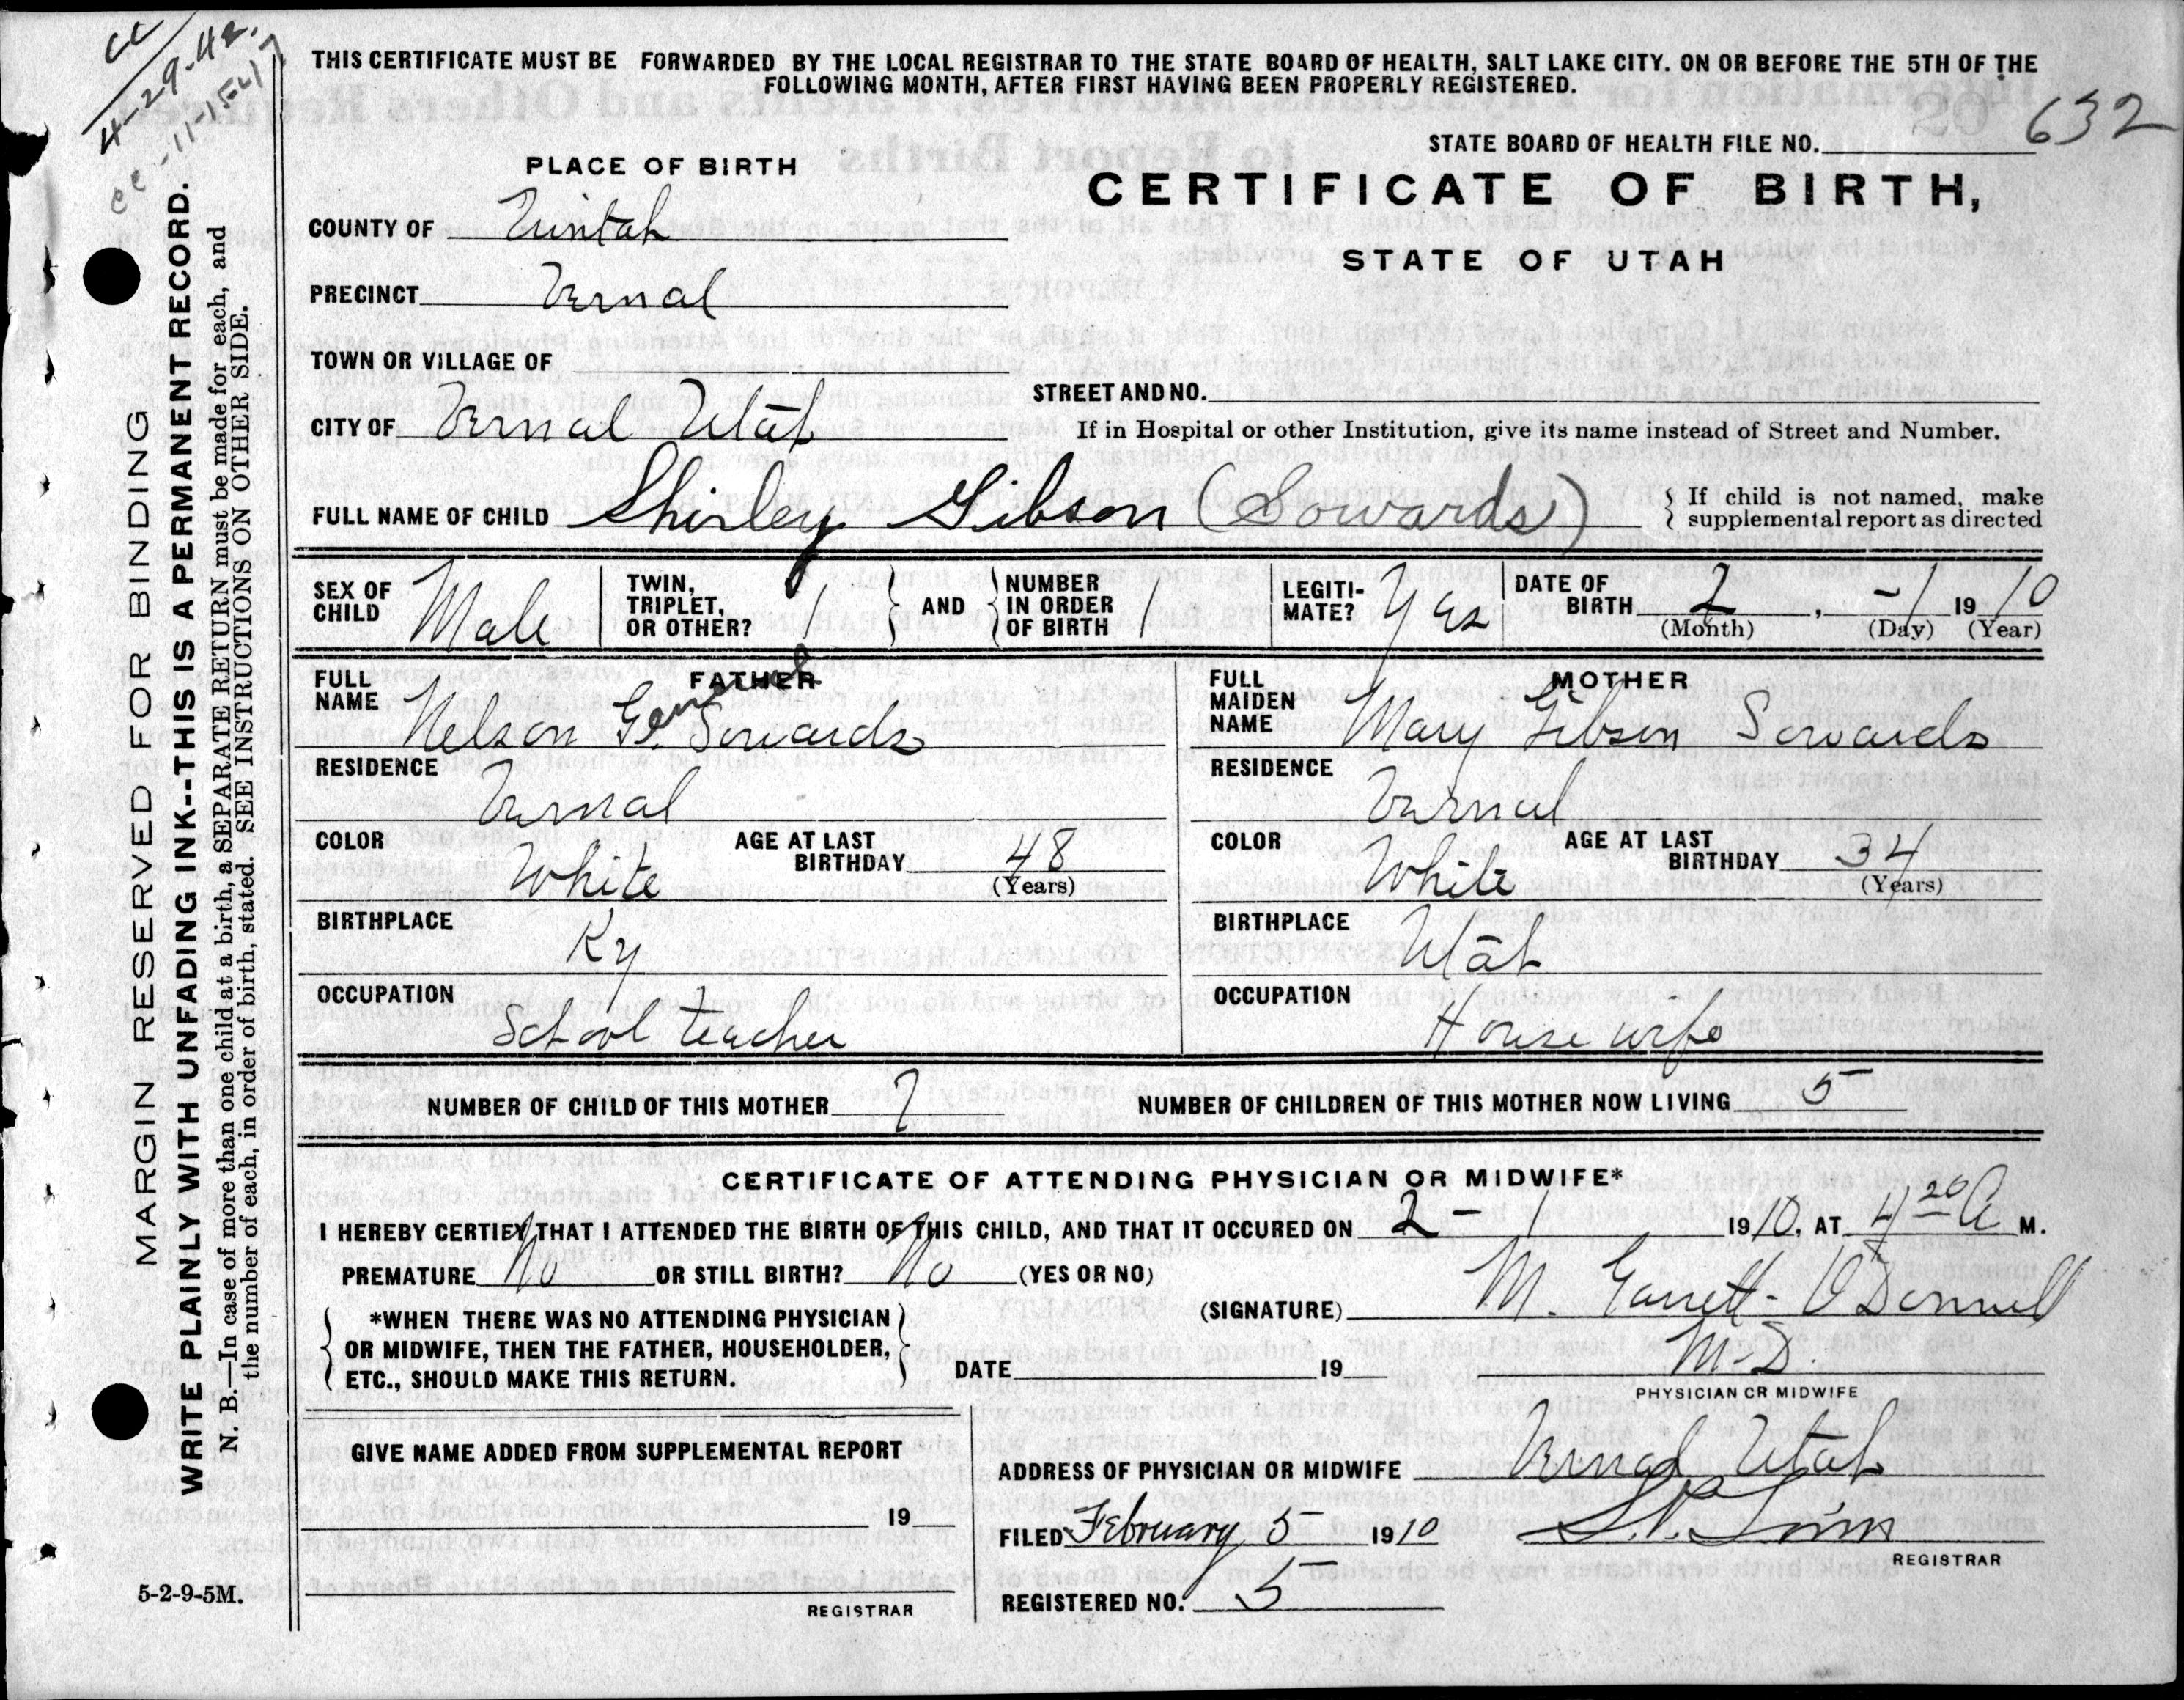 cc
4-29-42.
cc-11-15-41
THIS CERTIFICATE MUST BE FORWARDED BY THE LOCAL REGISTRAR TO THE STATE BOARD OF HEALTH, SALT LAKE CITY. ON OR BEFORE THE 5TH OF THE
FOLLOWING MONTH, AFTER FIRST HAVING BEEN PROPERLY REGISTERED.
STATE BOARD OF HEALTH FILE NO. 632
PLACE OF BIRTH
CERTIFICATE OF BIRTH,
STATE OF UTAH
COUNTY OF Uintah
PRECINCT Vernal
TOWN OR VILLAGE OF
STREET AND NO.
CITY OF Vernal Utah
If in Hospital or other Institution, give its name instead of Street and Number.
FULL NAME OF CHILD Shirley Gibson (Sowards)
If child is not named, make
supplemental report as directed
SEX OF CHILD Male
TWIN, TRIPLET, OR OTHER? 1
AND NUMBER IN ORDER OF BIRTH 1
LEGITI-MATE? Yes
DATE OF BIRTH 2, -1 1910
(Month) (Day) (Year)
FATHER
FULL NAME Nelson G. Sowards
RESIDENCE Vernal
COLOR White AGE AT LAST BIRTHDAY 48
(Years)
BIRTHPLACE Ky
OCCUPATION School teacher
MOTHER
FULL MAIDEN NAME Mary Gibson Sowards
RESIDENCE Vernal
COLOR White AGE AT LAST BIRTHDAY 34
(Years)
BIRTHPLACE Utah
OCCUPATION House wife
NUMBER OF CHILD OF THIS MOTHER 7 NUMBER OF CHILDREN OF THIS MOTHER NOW LIVING 5
CERTIFICATE OF ATTENDING PHYSICIAN OR MIDWIFE*
I HEREBY CERTIFY THAT I ATTENDED THE BIRTH OF THIS CHILD, AND THAT IT OCCURED ON 2-1 1910, AT 4 20 A M.
PREMATURE No OR STILL BIRTH? No (YES OR NO)
(SIGNATURE) M. Garrett-O'Donnell
M.D.
PHYSICIAN OR MIDWIFE
*WHEN THERE WAS NO ATTENDING PHYSICIAN
OR MIDWIFE, THEN THE FATHER, HOUSEHOLDER,
ETC., SHOULD MAKE THIS RETURN.
DATE 19
GIVE NAME ADDED FROM SUPPLEMENTAL REPORT
19
REGISTRAR
ADDRESS OF PHYSICIAN OR MIDWIFE Vernal Utah
FILED February 5 1910
REGISTRAR
REGISTERED NO. 5
MARGIN RESERVED FOR BINDING
WRITE PLAINLY WITH UNFADING INK--THIS IS A PERMANENT RECORD.
N. B.—In case of more than one child at a birth, a SEPARATE RETURN must be made for each, and
the number of each, in order of birth, stated. SEE INSTRUCTIONS ON OTHER SIDE.
5-2-9-5M.